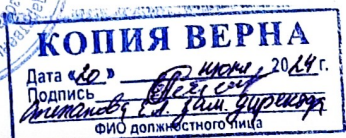 КОПИЯ ВЕРНА
Дата «20» июня 2024 г.
Подпись
Степанова зам. директора
ФИО должностного лица